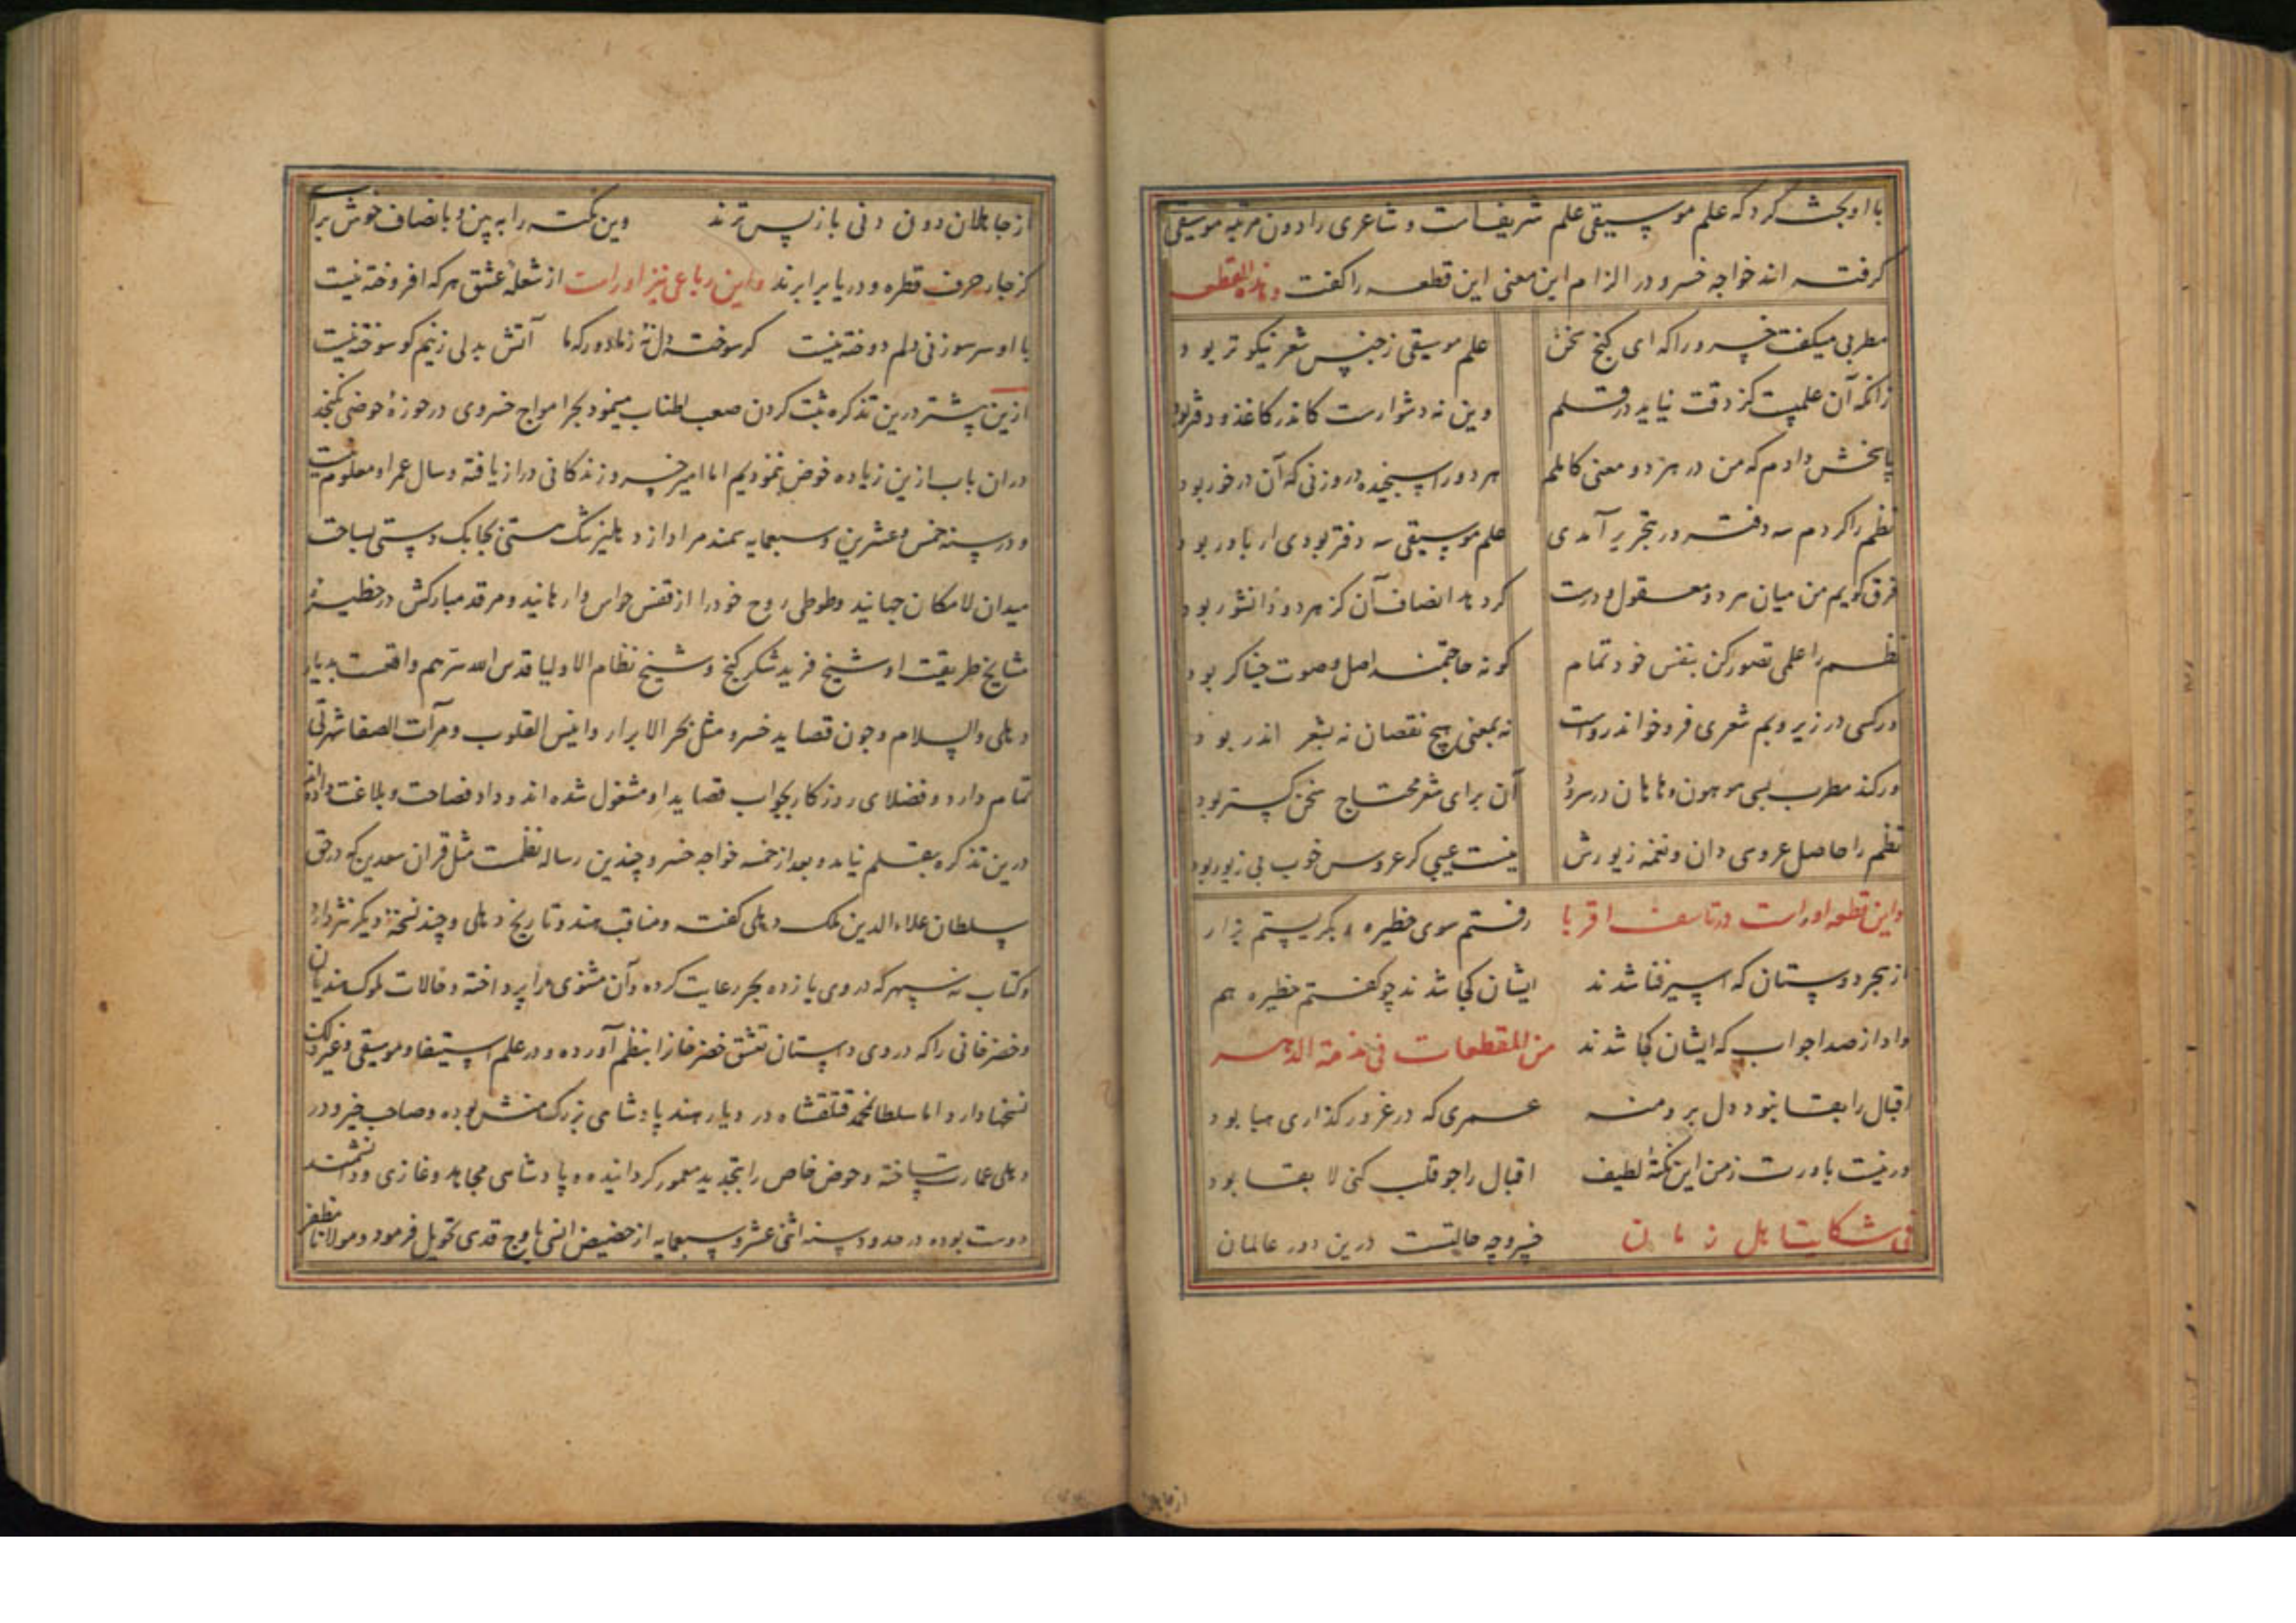 با او بحث کرد که علم موسیقی علم شریفست و شاعری را دون مرتبه موسیقی
گرفته اند خواجه خسرو در الزام این معنی این قطعه را گفت و هذه القطعه
مطربی میگفت خسرو را که ای گنج سخن علم موسیقی ز جنس شعر نیکوتر بود
زانکه آن علمیست کز دقت نیاید در قلم وین نه دشوارست کاندر کاغذ و دفتر بود
پاسخش دادم که من در هر دو معنی کاملم هر دو را سنجیده در وزنی که آن درخور بود
نظم را کردم سه دفتر ور بتحریر آمدی علم موسیقی سه دفتر بودی ار باور بود
فرق گویم من میان هر دو معقول و درست گر دهد انصاف آن کز هر دو دانشور بود
نظم را علمی تصور کن بنفس خود تمام کو نه محتاج اصول و صوت خنیاگر بود
ور کسی در زیر و بم شعری فرو خواند رواست نه بمعنی هیچ نقصان نه بشعر اندر بود
ور کند مطرب بسی هو هون و ها هان در سرود آن برای شعر محتاج سخن گستر بود
نظم را حاصل عروسی دان و نغمه زیورش نیست عیبی گر عروس خوب بی زیور بود
واین قطعه اوراست در تاسف اقربا رفتم سوی حظیره و بگریستم بزار
از هجر دوستان که اسیر فنا شدند ایشان کجا شدند چو گفتم حظیره هم
داد از صدا جواب که ایشان کجا شدند من المقطعات فی مذمة الدهر
اقبال را بقا نبود دل برو منه عمری که در غرور گذاری هبا بود
ور نیست باورت ز من این نکتهٔ لطیف اقبال را چو قلب کنی لا بقا بود
فی شکایت اهل زمان خسرو چه حالتست درین دور عالمان
از جاهلان دون و دنی بازپس ترند وین نکته را ببین و بانصاف خوش برآ
کز جار حرف قطره و دریا برابرند واین رباعی نیز اوراست از شعلهٔ عشق هر که افروخته نیست
با او سر سوزنی دلم دوخته نیست گر سوخته دل نهٔ ز ما دور که ما آتش بدلی زنیم کو سوخته نیست
ازین پیشتر درین تذکره ثبت کردن صعب اطناب مینمود بحر امواج خسروی در حوزهٔ حوضی نگنجد
در ان باب ازین زیاده خوض ننمودیم اما امیر خسرو زندگانی دراز یافته و سال عمر او معلوم نیست
و در سنه خمس و عشرین و سبعمایه سمند مراد از دهلیز تنگ هستی بچابک دستی بساحت
میدان لامکان جهانید و طوطی روح خود را از قفس حواس وارهانید و مرقد مبارکش در حظیره
مشایخ طریقت او شیخ فرید شکر گنج و شیخ نظام الاولیا قدس الله سرهم واقعست بدیار
دهلی والسلام و چون قصاید خسرو مثل بحر الابرار و انیس القلوب و مرآت الصفا شهرتی
تمام دارد و فضلای روزگار بجواب قصاید او مشغول شده اند و داد فصاحت و بلاغت داده اند
درین تذکره بقلم نیامد و بعد از خمسه خواجه خسرو چندین رساله نظمست مثل قران سعدین که در حق
سلطان علاء الدین ملک دهلی گفته و مناقب هند و تاریخ دهلی و چند نسخهٔ دیگر نثر دارد
و کتاب نه سپهر که در وی یازده بحر رعایت کرده و آن مثنوی را پرداخته و حالات ملوک هندیان
و خضرخانی را که در وی داستان تعشق خضر خان را بنظم آورده و در علم استیفا و موسیقی و غیر ذلک
نسخها دارد اما سلطان محمد قتلقشاه در دیار هند پادشاهی بزرگ منش بوده و صاحب خیر و در
دهلی عمارت ساخته و حوض خاص را بتجدید معمور گردانیده و پادشاهی مجاهد و غازی و دانشمند
دوست بوده در حدود سنه اثنی عشر و سبعمایه از حضیض انسی باوج قدسی تحویل فرمود و مولانا مظفر